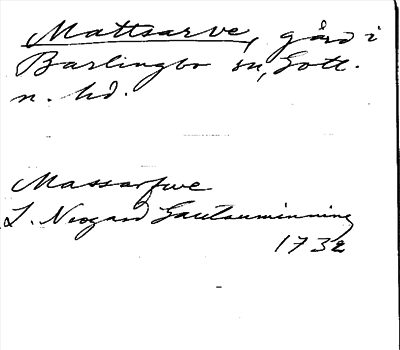 Mattsarve, gård i
Barlingbo sn, Gotl.
n. hd.
Massarfwe
L. Neogard Gautauminning
1732